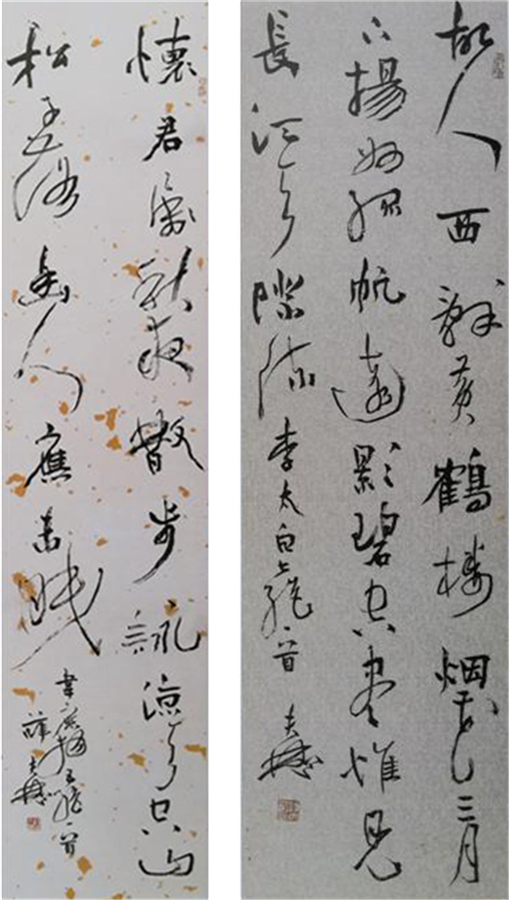 故人西辭黃鶴樓烟花三月
下揚州孤帆遠影碧空盡惟見
長江天際流 李太白七絕一首
懷君屬秋夜散步詠涼天空山
松子落幽人應未眠
韋應物五絕一首